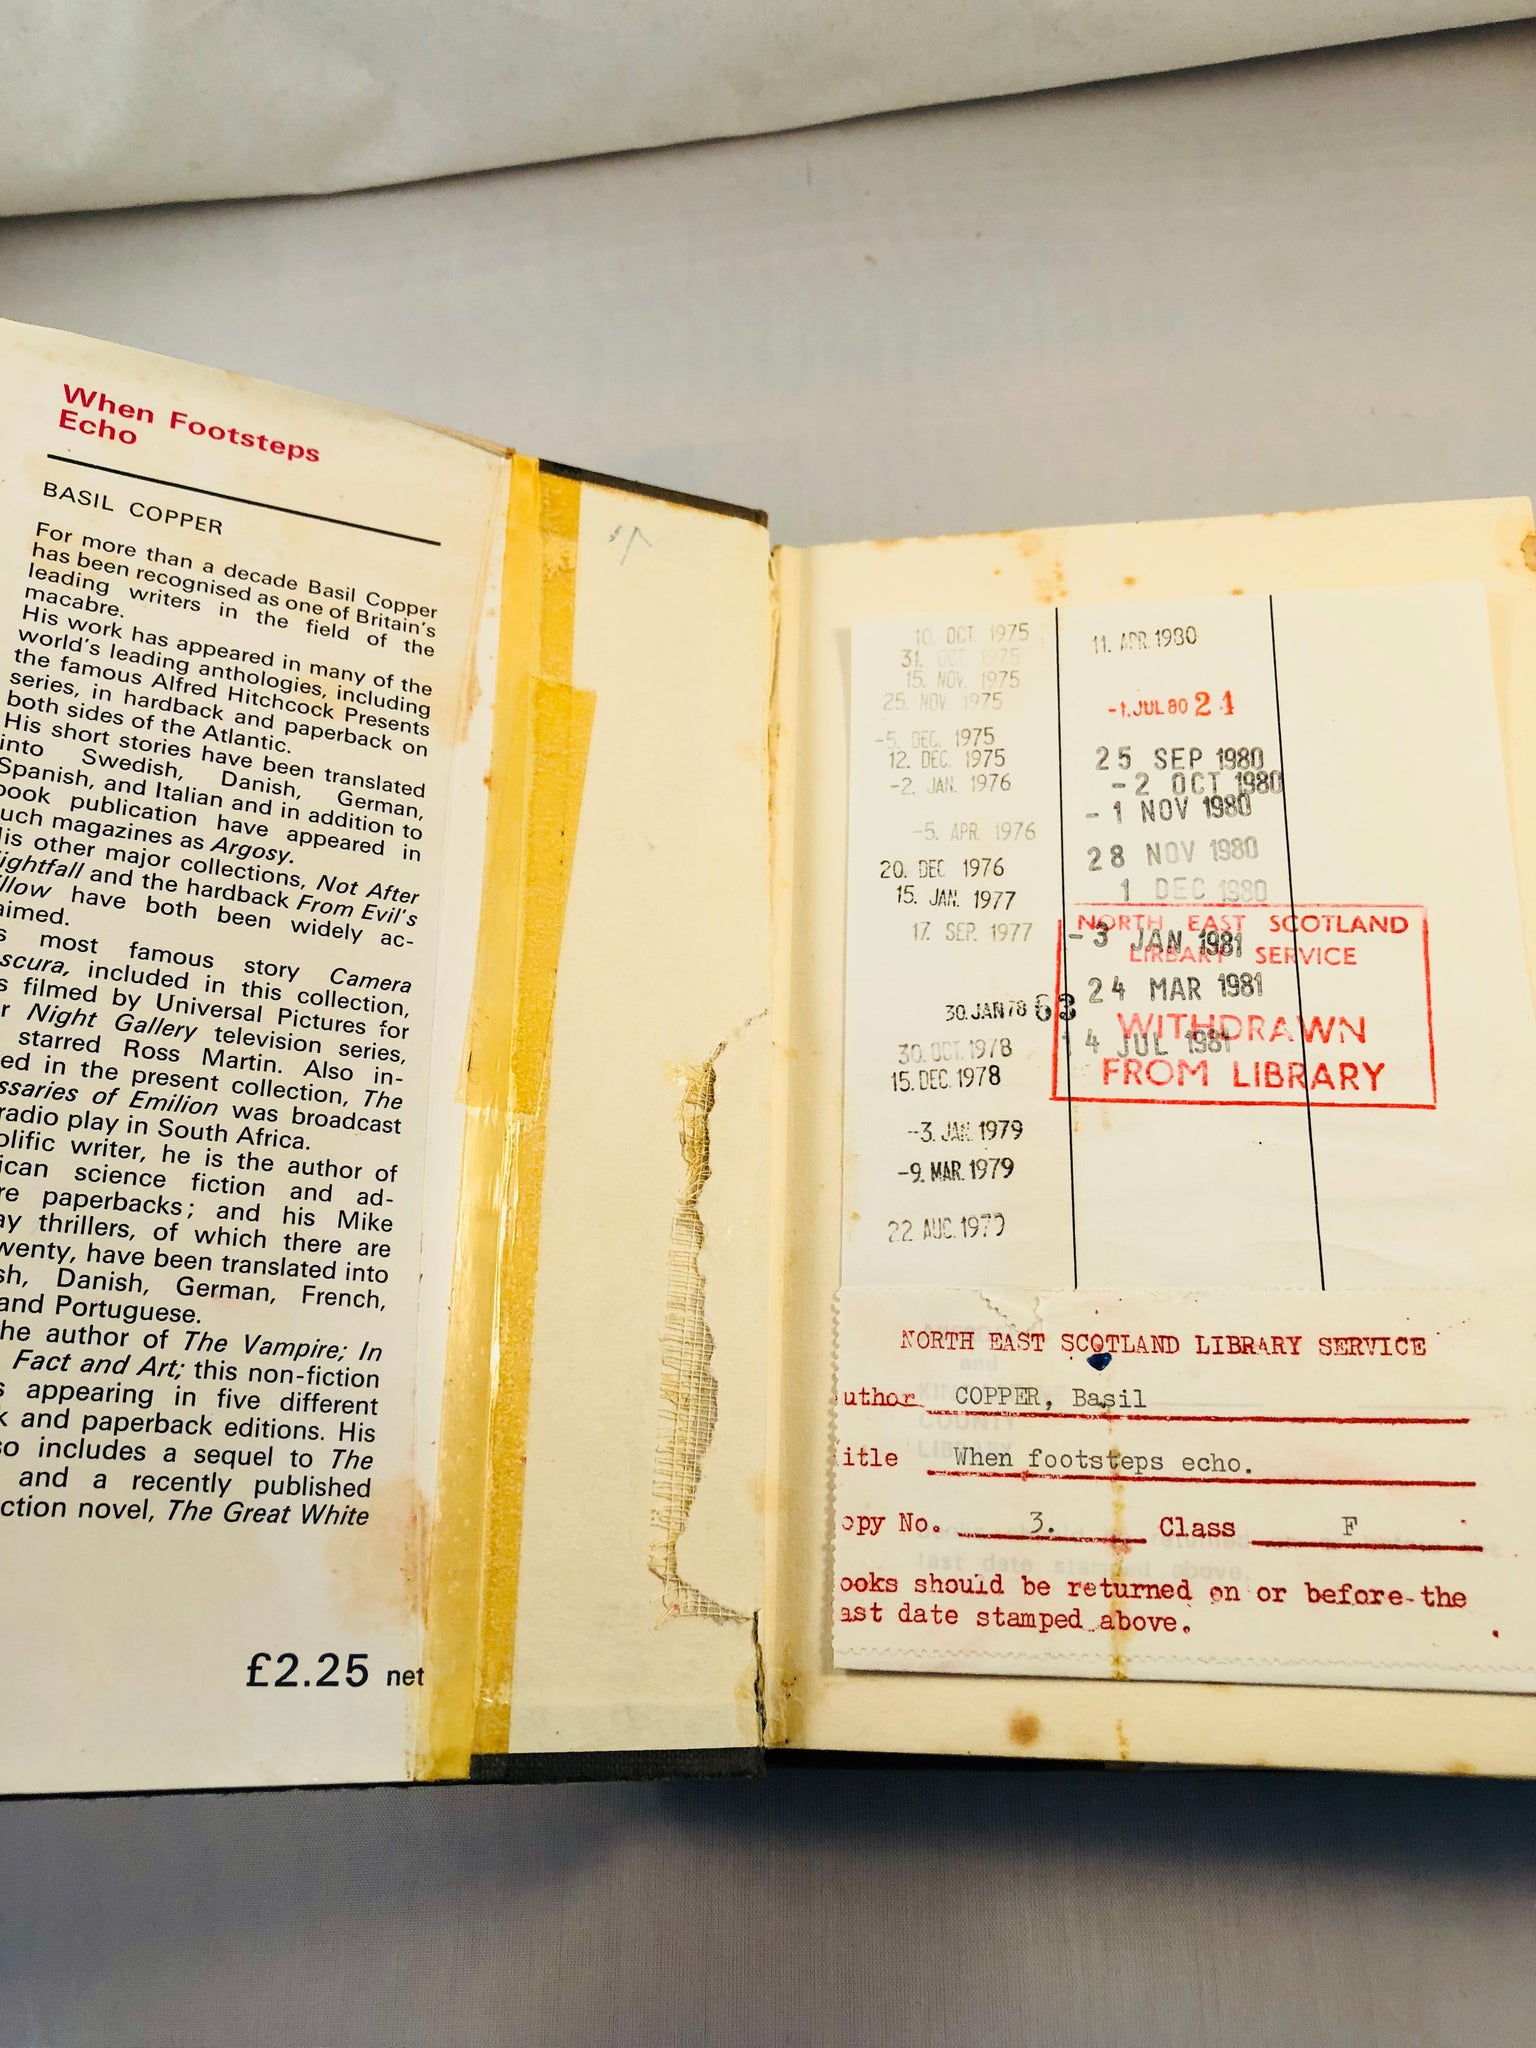 When Footsteps
Echo
BASIL COPPER
For more than a decade Basil Copper
has been recognised as one of Britain's
leading writers in the field of the
macabre.
His work has appeared in many of the
world's leading anthologies, including
the famous Alfred Hitchcock Presents
series, in hardback and paperback on
both sides of the Atlantic.
His short stories have been translated
into Swedish, Danish, German,
Spanish, and Italian and in addition to
book publication have appeared in
uch magazines as Argosy.
lis other major collections, Not After
ightfall and the hardback From Evil's
illow have both been widely ac-
aimed.
s most famous story Camera
scura, included in this collection,
s filmed by Universal Pictures for
r Night Gallery television series,
starred Ross Martin. Also in-
ed in the present collection, The
ssaries of Emilion was broadcast
radio play in South Africa.
olific writer, he is the author of
ican science fiction and ad-
re paperbacks; and his Mike
ay thrillers, of which there are
wenty, have been translated into
sh, Danish, German, French,
and Portuguese.
he author of The Vampire; In
Fact and Art; this non-fiction
s appearing in five different
k and paperback editions. His
so includes a sequel to The
and a recently published
ction novel, The Great White
£2.25 net
10. OCT 1975
31. OCT 1975
15. NOV. 1975
25. NOV. 1975
-5. DEC. 1975
12. DEC. 1975
-2. JAN. 1976
-5. APR. 1976
20. DEC 1976
15. JAN. 1977
17. SEP. 1977
30. JAN 78 63
30. OCT. 1978
15. DEC. 1978
-3. JAN. 1979
-9. MAR. 1979
22 AUG. 1979
11. APR. 1980
-1. JUL 80 24
25 SEP 1980
-2 OCT 1980
-1 NOV 1980
28 NOV 1980
1 DEC 1980
-3 JAN 1981
24 MAR 1981
14 JUL 1981
NORTH EAST SCOTLAND
LIBRARY SERVICE
WITHDRAWN
FROM LIBRARY
NORTH EAST SCOTLAND LIBRARY SERVICE
uthor COPPER, Basil
itle When footsteps echo.
opy No. 3. Class F
ooks should be returned on or before the
ast date stamped above.